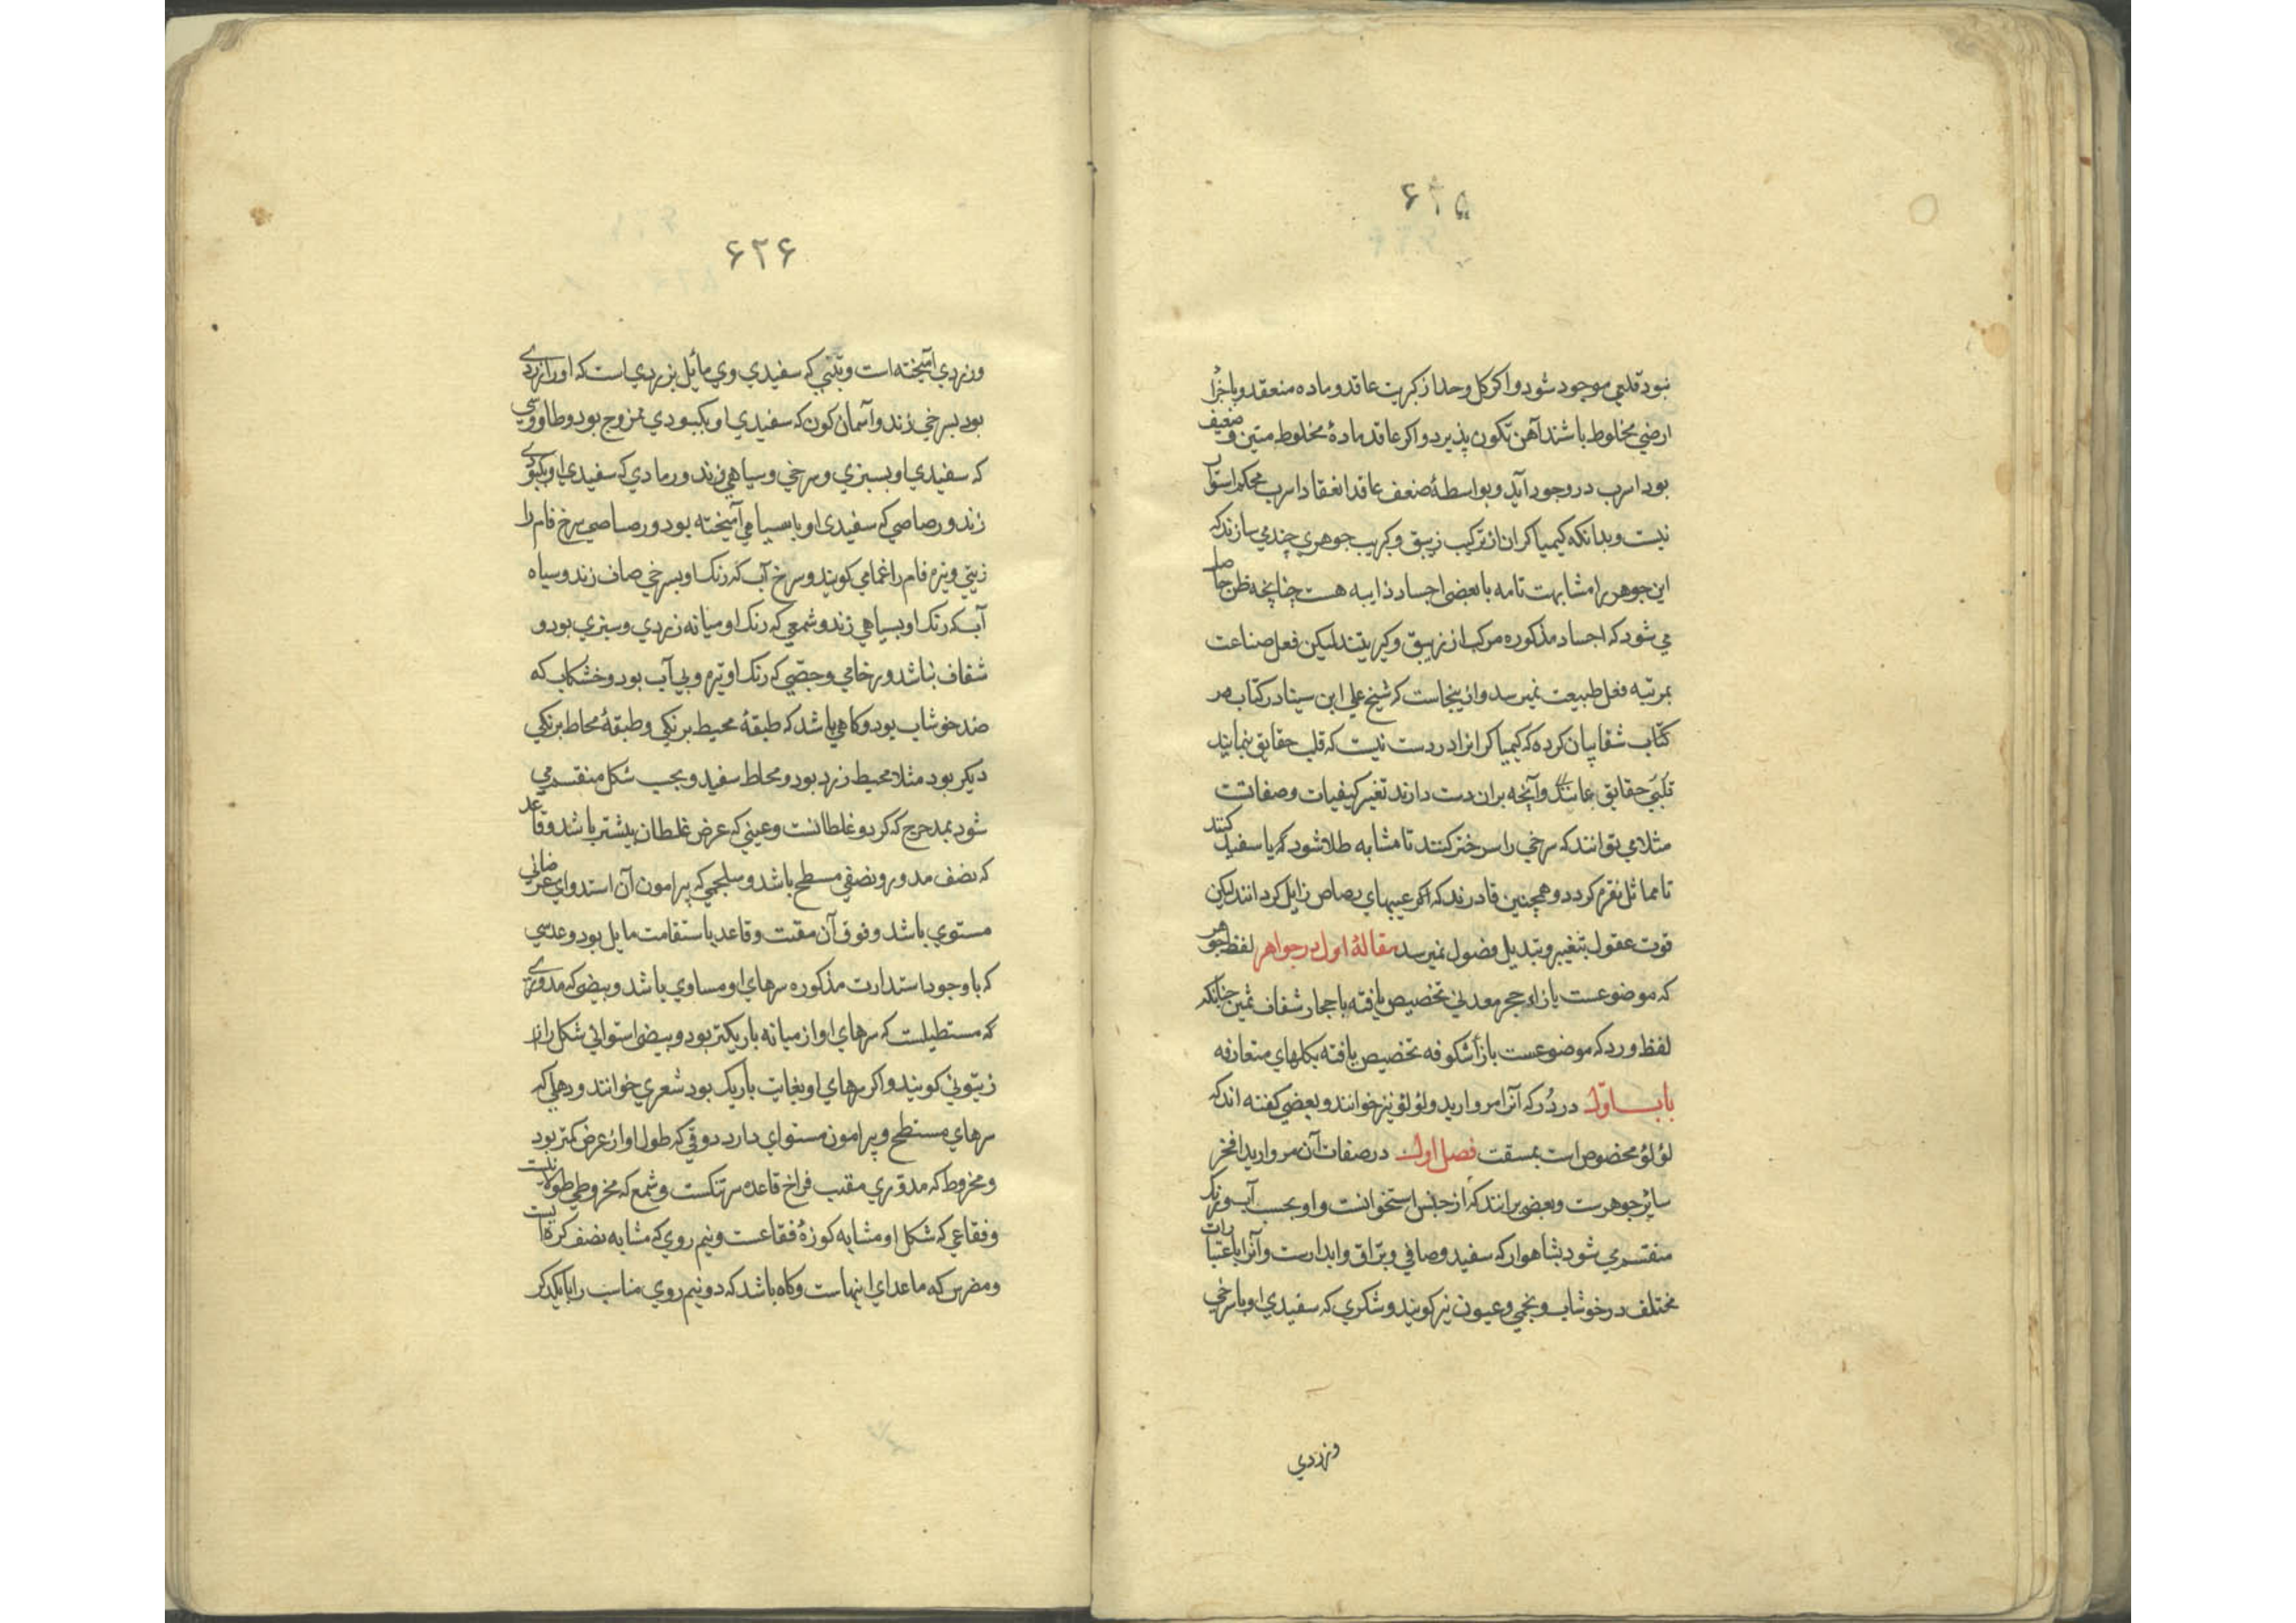 ۶۲۵
نبود قلعی موجود شود و اکر کل وحدا ز کبریت عاقد و ماده منعقد و باجزا
ارضی مخلوط باشند آهن تکون پذیرد و اکر عاقد مادهٔ مخلوط متین و ضعیف
بود اسرب در وجود آید و بواسطهٔ ضعف عاقد انعقاد اسرب محکم استوار
نیست و بدانکه کیمیاکران از ترکیب زیبق و کبریت جوهری چند می سازند که
این جوهر را مشابهت تامه با بعضی اجساد ذایبه هست چنانچه ظن حاصل
می شود که اجساد مذکوره مرکب از زیبق و کبریتند لیکن فعل صناعت
بمرتبه فعل طبیعت نمیرسد و از ینجاست که شیخ علی ابن سینا در کتاب هر
کتاب شفا بیان کرده که کیمیاکرانرا در دست نیست که قلب حقایق نمایند
قلبی حقایق و آنچه بران دست دارند تغیر کیفیات و صفاتست
مثلا می توانند که سرخی را سرختر کنند تا مشابه طلا شود که یا سفید کنند
تا مماثل نقره کردد و همچنین قادرند که اکر عیبهای رصاص زایل کردانند لیکن
قوت عقول بتغییر و تبدیل فصول نمیرسد مقالهٔ اول در جواهر لفظ جوهر
که موضوعست بازاء حجر معدنی تخصیص یافته باحجار شفاف ثمین چنانکه
لفظ ورد که موضوعست بازأ شکوفه تخصیص یافته بکلهای متعارفه
باب اول در دُر که آنرا مروارید و لؤلؤ نیز خوانند و بعضی کفته اند که
لؤلؤ مخصوص است بمسقت فصل اول در صفات آن مروارید افخر
سایر جوهرست و بعضی برانند که از جنس استخوانست و او بحسب آب و رنک
منقسم می شود بشاهوار که سفید و صافی و براق و ابدارست و آنرا باعتبارات
مختلف در خوشاب و نجمی و عیون نیز کویند و شکری که سفیدی او با سرخی
وزردی
۶۲۶
وزردی آمیخته است و تبنی که سفیدی وی مایل بزردی است که اورا زردی
بود بسرخی زند و آسمان کون که سفیدی او بکبودی ممزوج بود و طاووسی
که سفیدی او بسبزی و سرخی و سیاهی زند و رمادی که سفیدی او بکبودی
زند و رصاصی که سفیدی او با سیاهی آمیخته بود و رصاصی سرخ فام را
زیتی و تیره فام را غمامی کویند و سرخ آب که رنک او بسرخی صاف زند و سیاه
آب که رنک او بسیاهی زند و شمعی که رنک او میانه زردی و سبزی بود و
شفاف نباشد و رخامی و جصی که رنک او تیره و بی آب بود و خشکاب که
ضد خوشاب بود و کاهی باشد که طبقهٔ محیط برنکی و طبقهٔ محاط برنکی
دیکر بود مثلا محیط زرد بود و محاط سفید و بحسب شکل منقسم می
شود بمدحرج که کرد و غلطانست و عینی که عرض غلطان بیشتر باشد و قاعد
که نصف مدور و نصفی مسطح باشد و سلجمی که پیرامون آن استدوای عرضانی
مستوی باشد و فوق آن مقبب و قاعد باستقامت مایل بود و عدسی
که با وجود استدارت مذکوره سرهای او مساوی باشد و بیضی که مدوری
که مستطیلست که سرهای او از میانه باریکتر بود و بیضی استوانی شکل را از
زیتونی کویند و اکر سرهای او بغایت باریک بود شعری خوانند و دهلی که
سرهای مسطح و پیرامون مستوای دارد دوقی که طول او از عرض کمتر بود
و مخروط که مدوری مقبب فراخ قاعده سر تنکست و شمع که مخروطی طولانیست
و فقاعی که شکل او مشابه کوزهٔ فقاعست و نیم روی که مشابه نصف کره است
و مضرس که ماعدای اینهاست و کاه باشد که دو نیم روی مناسب را بایکدکر